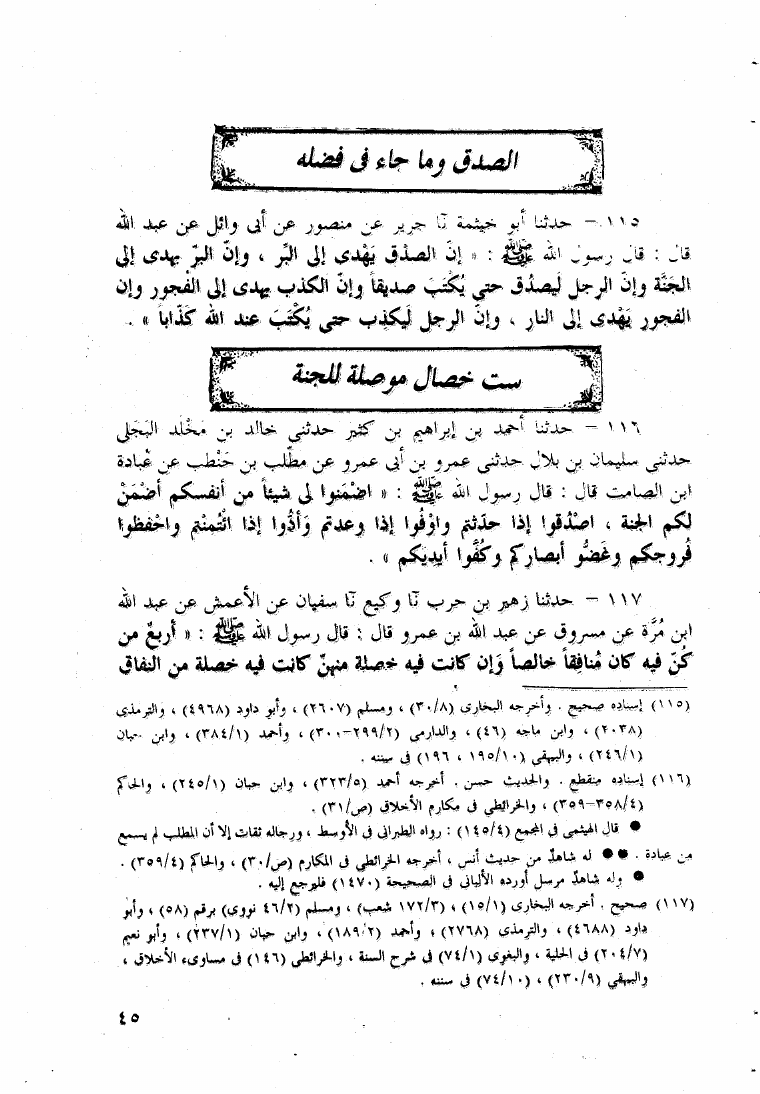 الصدق وما جاء فى فضله
١١٥ – حدثنا أبو خيثمة نَا جرير عن منصور عن أبى وائل عن عبد الله
قال : قال رسول الله ﷺ : « إنّ الصدْق يَهْدى إلى البِّر ، وإنّ البرّ يهدى إلى
الجَنَّة وإنّ الرجل ليَصدُق حتى يُكْتَبَ صديقاً وإنّ الكذب يهدى إلى الفُجور وإن
الفجور يَهْدى إلى النار ، وإنّ الرجل لَيكذب حتى يُكْتَبَ عند الله كَذّاباً » .
ست خصال موصلة للجنة
١١٦ – حدثنا أحمد بن إبراهيم بن كثير حدثنى خالد بن مَخْلَد البَجَلى
حدثنى سليمان بن بلال حدثنى عمرو بن أبى عمرو عن مطلّب بن حَنْطب عن عُبادة
ابن الصامت قال : قال رسول الله ﷺ : « اضْمَنوا لى شيئاً من أنفسكم أضْمَنْ
لكم الجنة ، اصْدُقوا إذا حدّثتم واوْفُوا إذا وعدتم وَأدُّوا إذا ائْتُمِنْتُم واحْفظوا
فُروجكم وغَضُّو أبصاركم وكُفُّوا أيديكم » .
١١٧ – حدثنا زهير بن حرب نَا وكيع نَا سفيان عن الأعمش عن عبد الله
ابن مُرَّة عن مسروق عن عبد الله بن عمرو قال : قال رسول الله ﷺ : « أربعٌ من
كُنّ فيه كان مُنافِقاً خالصاً وَإن كانت فيه خصلة منهنّ كانت فيه خصلة من النفاق
(١١٥) إسناده صحيح . وأخرجه البخارى (٣٠/٨) ، ومسلم (٢٦٠٧) ، وأبو داود (٤٩٦٨) ، والترمذى
(٢٠٣٨) ، وابن ماجه (٤٦) ، والدارمى (٢٩٩/٢-٣٠٠) ، وأحمد (٣٨٤/١) ، وابن حبان
(٢٤٦/١) ، والبيهقى (١٩٥/١٠ ، ١٩٦) فى سننه .
(١١٦) إسناده منقطع . والحديث حسن . أخرجه أحمد (٣٢٣/٥) ، وابن حبان (٢٤٥/١) ، والحاكم
(٣٥٨/٤-٣٥٩) ، والخرائطى فى مكارم الأخلاق (ص/٣١) .
● قال الهيثمى فى المجمع (١٤٥/٤) : رواه الطبرانى فى الأوسط ، ورجاله ثقات إلا أن المطلب لم يسمع
من عبادة . ●● له شاهدٌ من حديث أنس ، أخرجه الخرائطى فى المكارم (ص/٣٠) ، والحاكم (٣٥٩/٤) .
● وله شاهدٌ مرسل أورده الألبانى فى الصحيحة (١٤٧٠) فليرجع إليه .
(١١٧) صحيح . أخرجه البخارى (١٥/١) ، (١٧٢/٣ شعب) ، ومسلم (٤٦/٢ نووى) برقم (٥٨) ، وأبو
داود (٤٦٨٨) ، والترمذى (٢٧٦٨) ، وأحمد (١٨٩/٢) ، وابن حبان (٢٣٧/١) ، وأبو نعيم
(٢٠٤/٧) فى الحلية ، والبغوى (٧٤/١) فى شرح السنة ، والخرائطى (١٤٦) فى مساوىء الأخلاق ،
والبيهقى (٢٣٠/٩) ، (٧٤/١٠) فى سننه .
٤٥